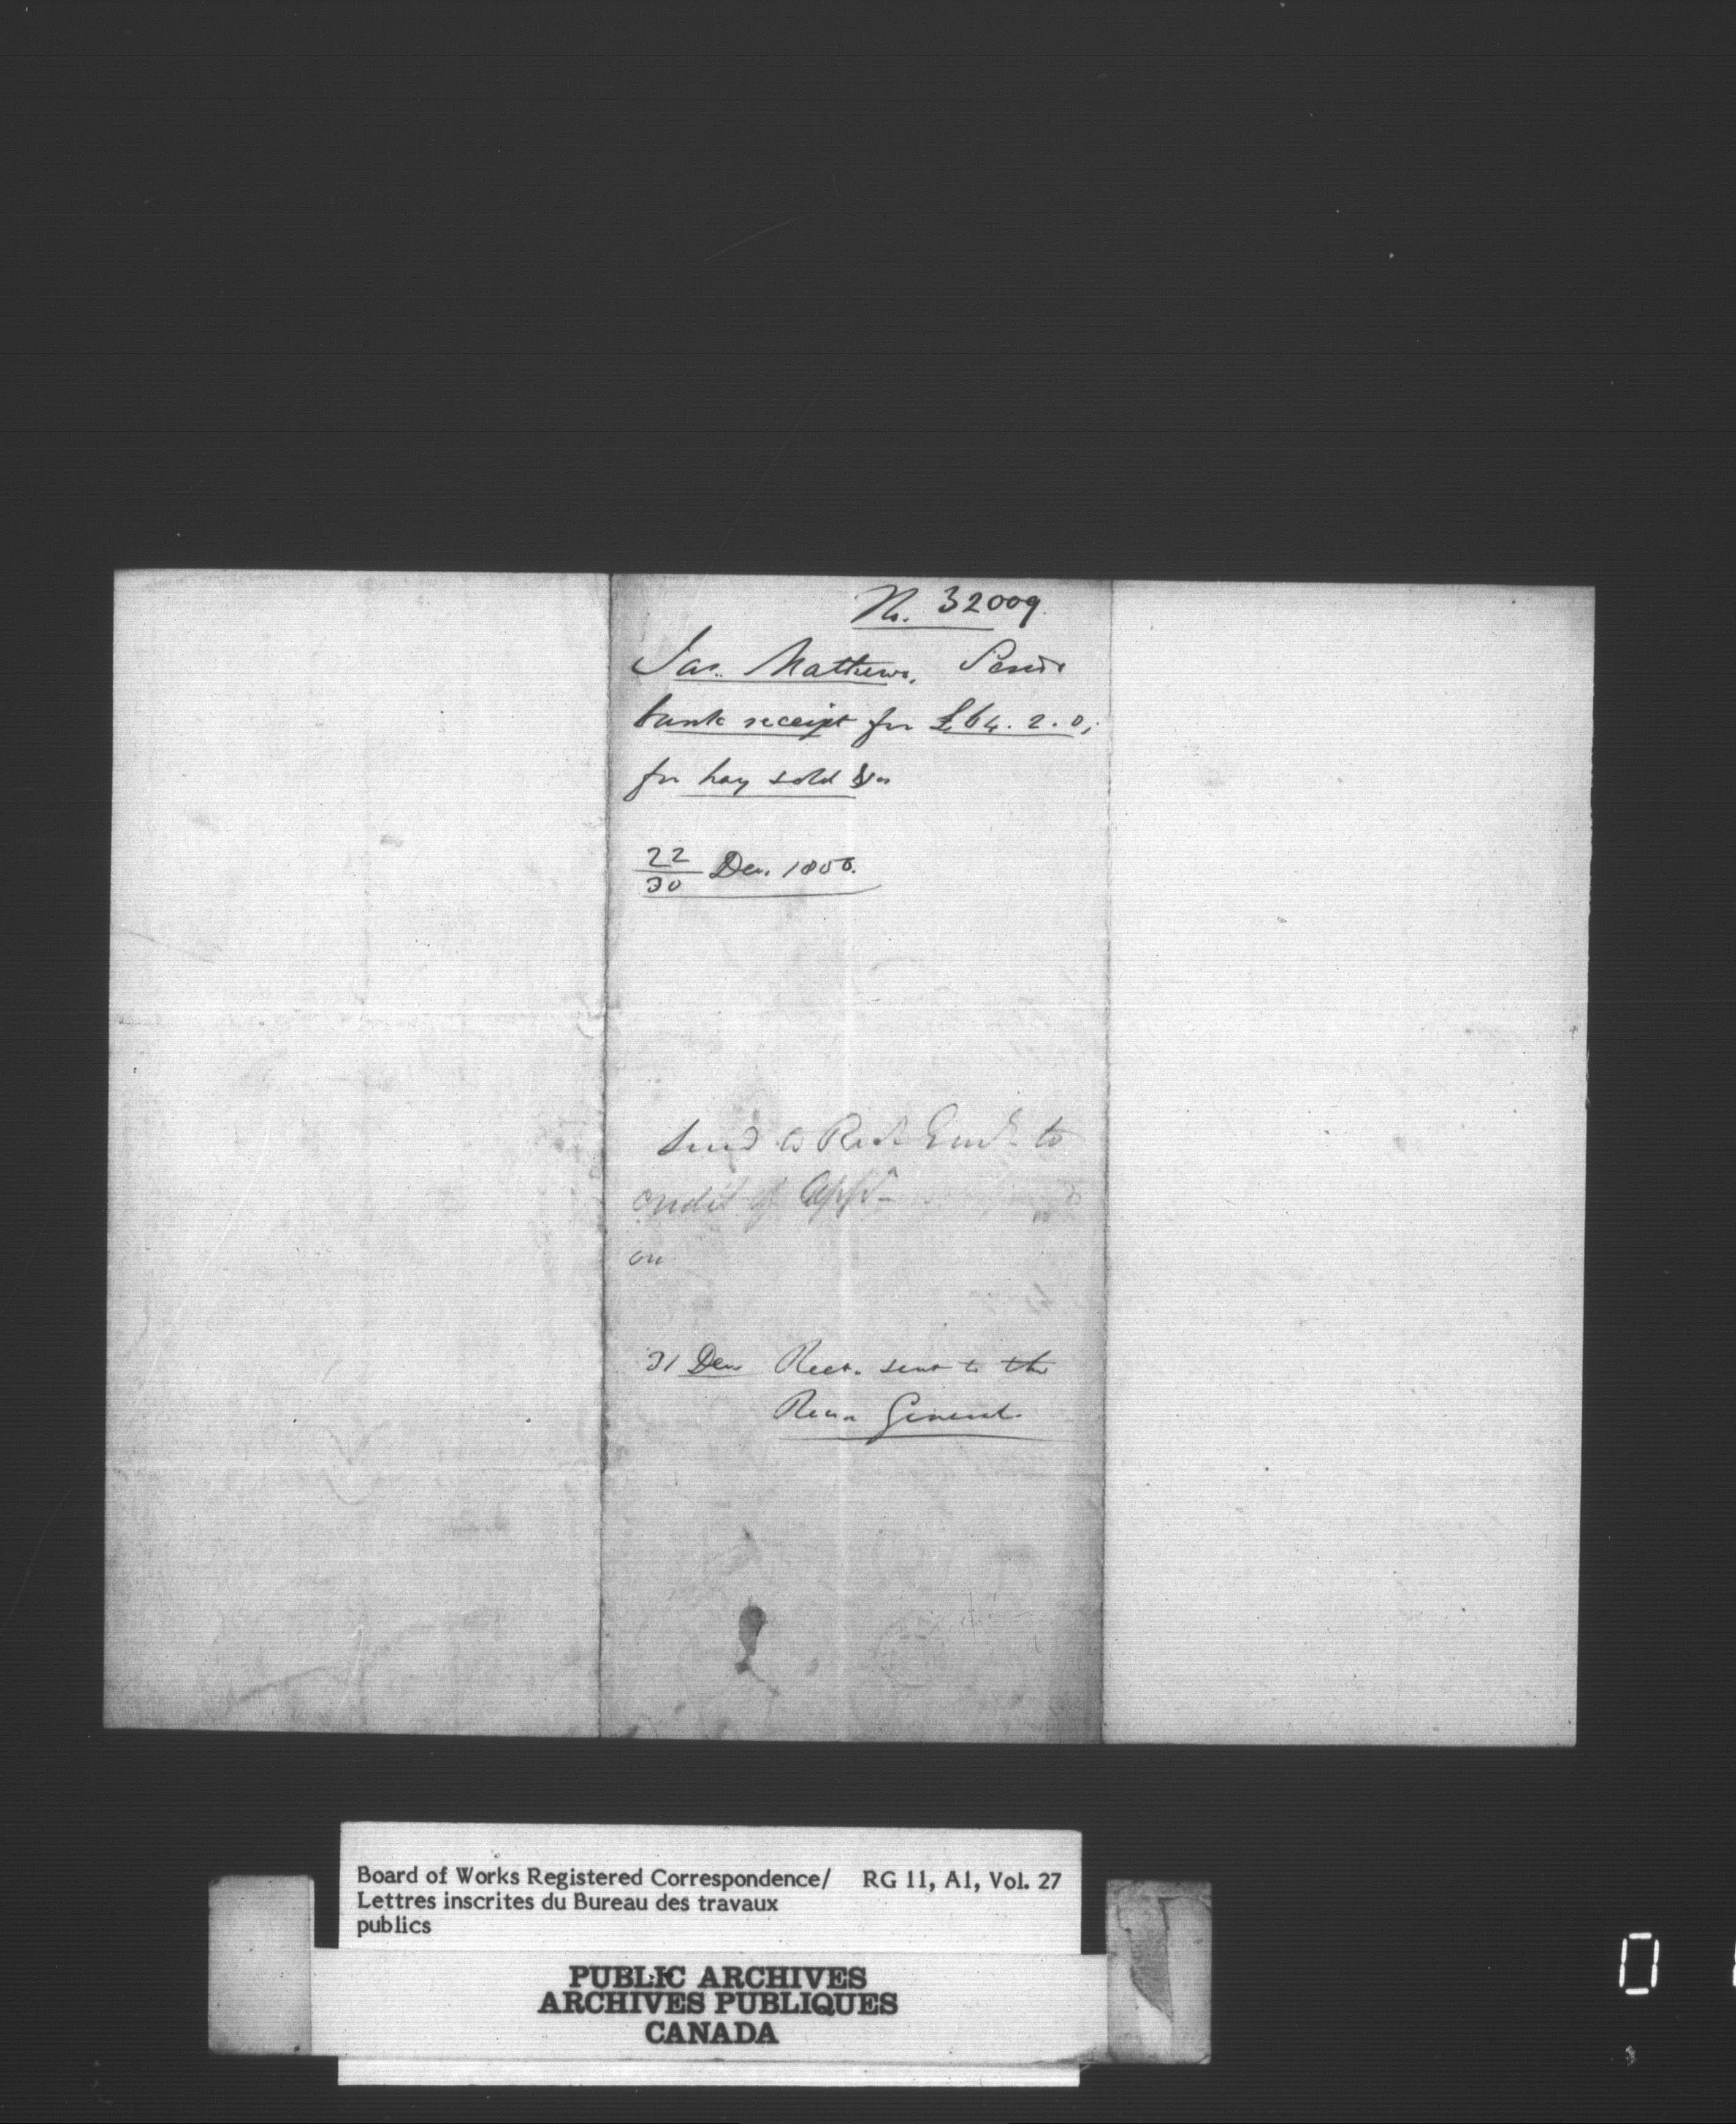 No. 32009
Jas. Mathews. Sends
bank receipt for £64. 2. 0,
for hay sold
22/30 Dec. 1850.
Send to Rec. Genl. to
credit of App.
on
31 Dec Rect. sent to the
Recr General.
Board of Works Registered Correspondence/ RG 11, A1, Vol. 27
Lettres inscrites du Bureau des travaux
publics
PUBLIC ARCHIVES
ARCHIVES PUBLIQUES
CANADA
0